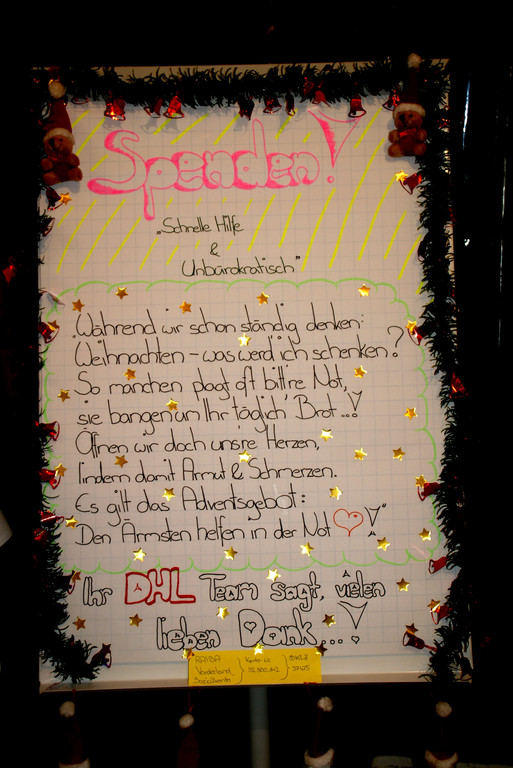 Spenden!
„Schnelle Hilfe
&
Unbürokratisch"
„Während wir schon ständig denken:
Weihnachten - was werd ich schenken?
So manchen plagt oft bittre Not,
sie bangen um Ihr täglich' Brot...!
Öffnen wir doch uns're Herzen,
lindern damit Armut & Schmerzen.
Es gilt das Adventsgebot:
Den Ärmsten helfen in der Not!"
Ihr DHL Team sagt, vielen
lieben Dank...!
RAIBA
Vorderland